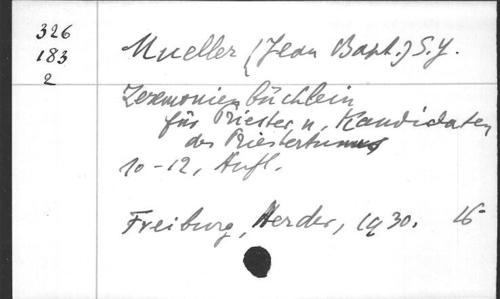 326
183
2
Mueller (Jean Bapt.) S.J.
Zeremonienbüchlein
für Priester u. Kandidaten
des Priestertums
10-12, Aufl.
Freiburg, Herder, 1930. 16°